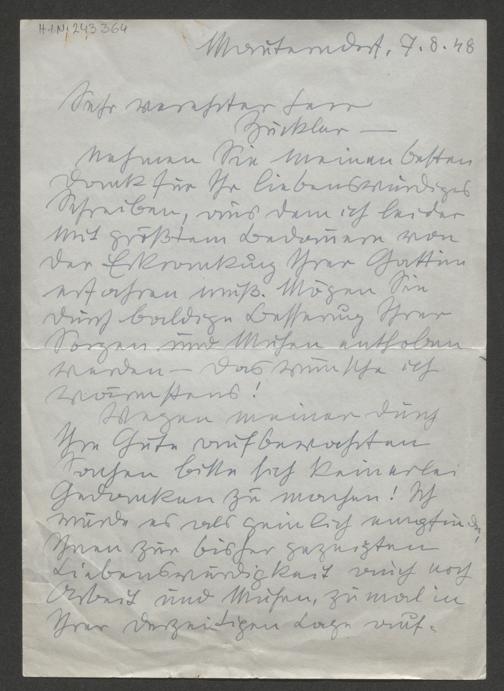 H.I.N. 243364
Mauterndorf, 7.8.48
Sehr verehrter Herr
Zückler —
Nehmen Sie meinen besten
Dank für Ihr liebenswürdiges
Schreiben, aus dem ich leider
mit größtem Bedauern von
der Erkrankung Ihrer Gattin
erfahren muß. Mögen Sie
durch baldige Besserung Ihrer
Sorgen und Mühen enthoben
werden – das wünsche ich
wärmstens!
Wegen meiner durch
Ihre Güte aufbewahrten
Sachen bitte sich keinerlei
Gedanken zu machen! Ich
würde es als peinlich empfinden,
Ihnen zur bisher gezeigten
Liebenswürdigkeit auch noch
Arbeit und Mühen, zumal in
Ihrer derzeitigen Lage auf-